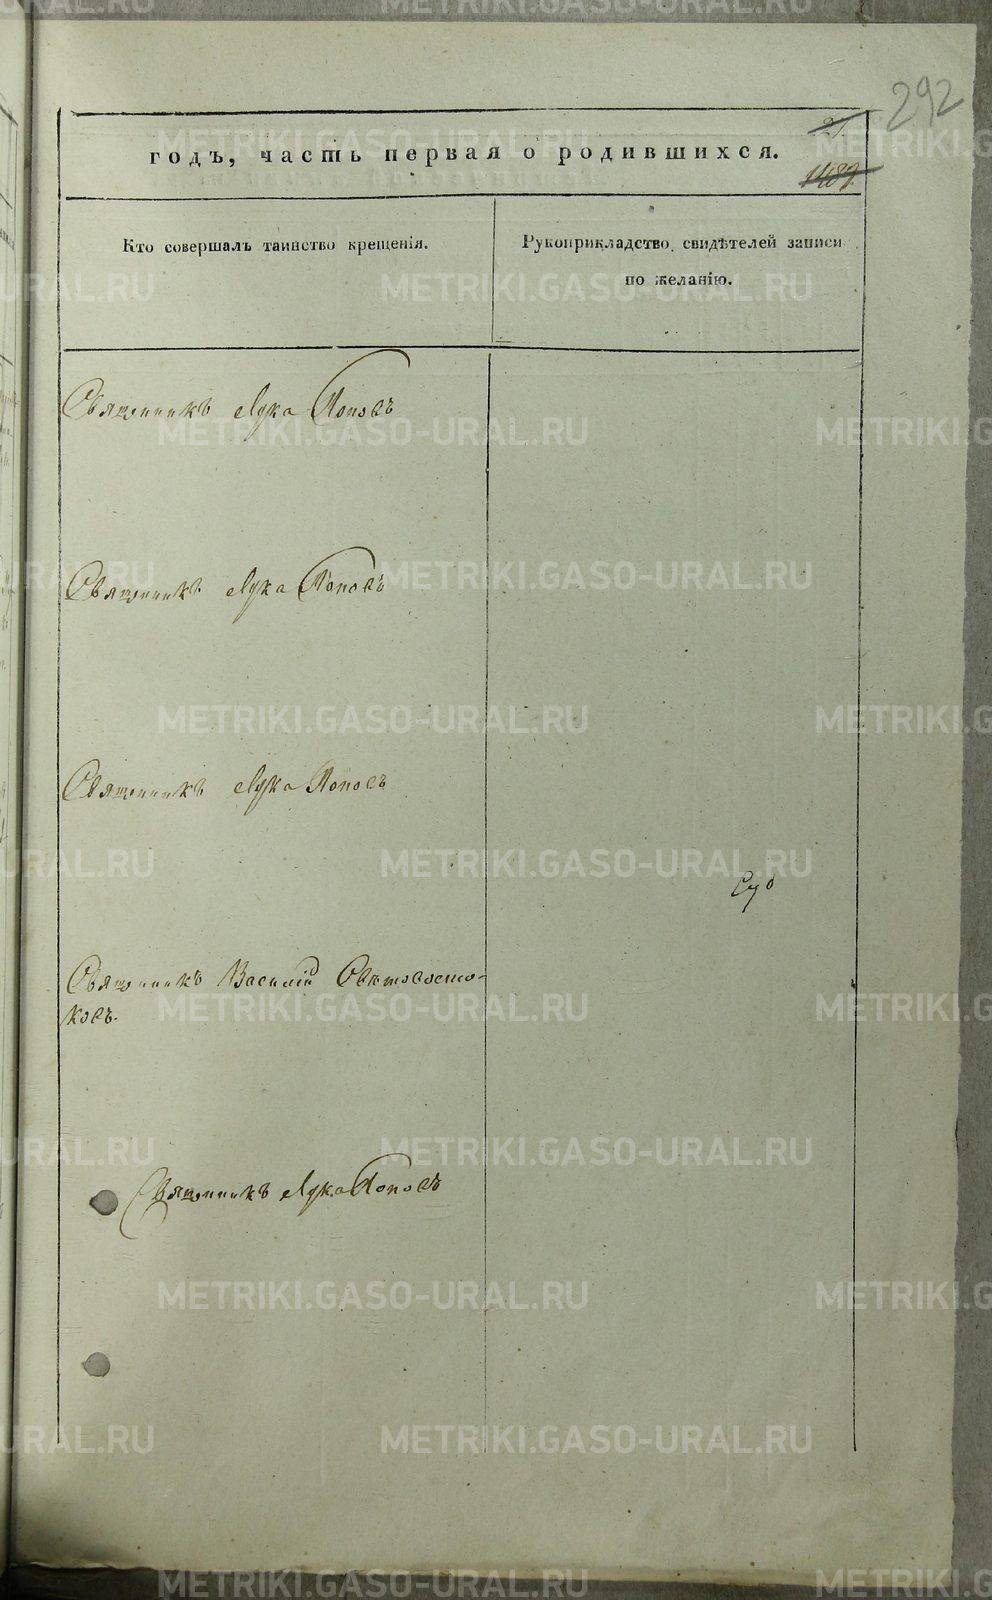 292
21.
годъ, часть первая о родившихся.
1489.
Кто совершалъ таинство крещенія.
Рукоприкладство свидѣтелей записи
по желанію.
Священникъ Лука Поповъ
Священникъ Лука Поповъ
Священникъ Лука Поповъ
Суд
Священникъ Василій Свѣтовосто-
ковъ.
Священникъ Лука Поповъ
METRIKI.GASO-URAL.RU